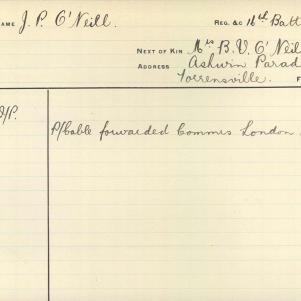 NAME J. P. O'Neill. REG. &C 16th Batt
NEXT OF KIN Mrs B. V. O'Neil
ADDRESS Ashwin Parad
Torrensville. F
P/Cable forwarded Commrs London